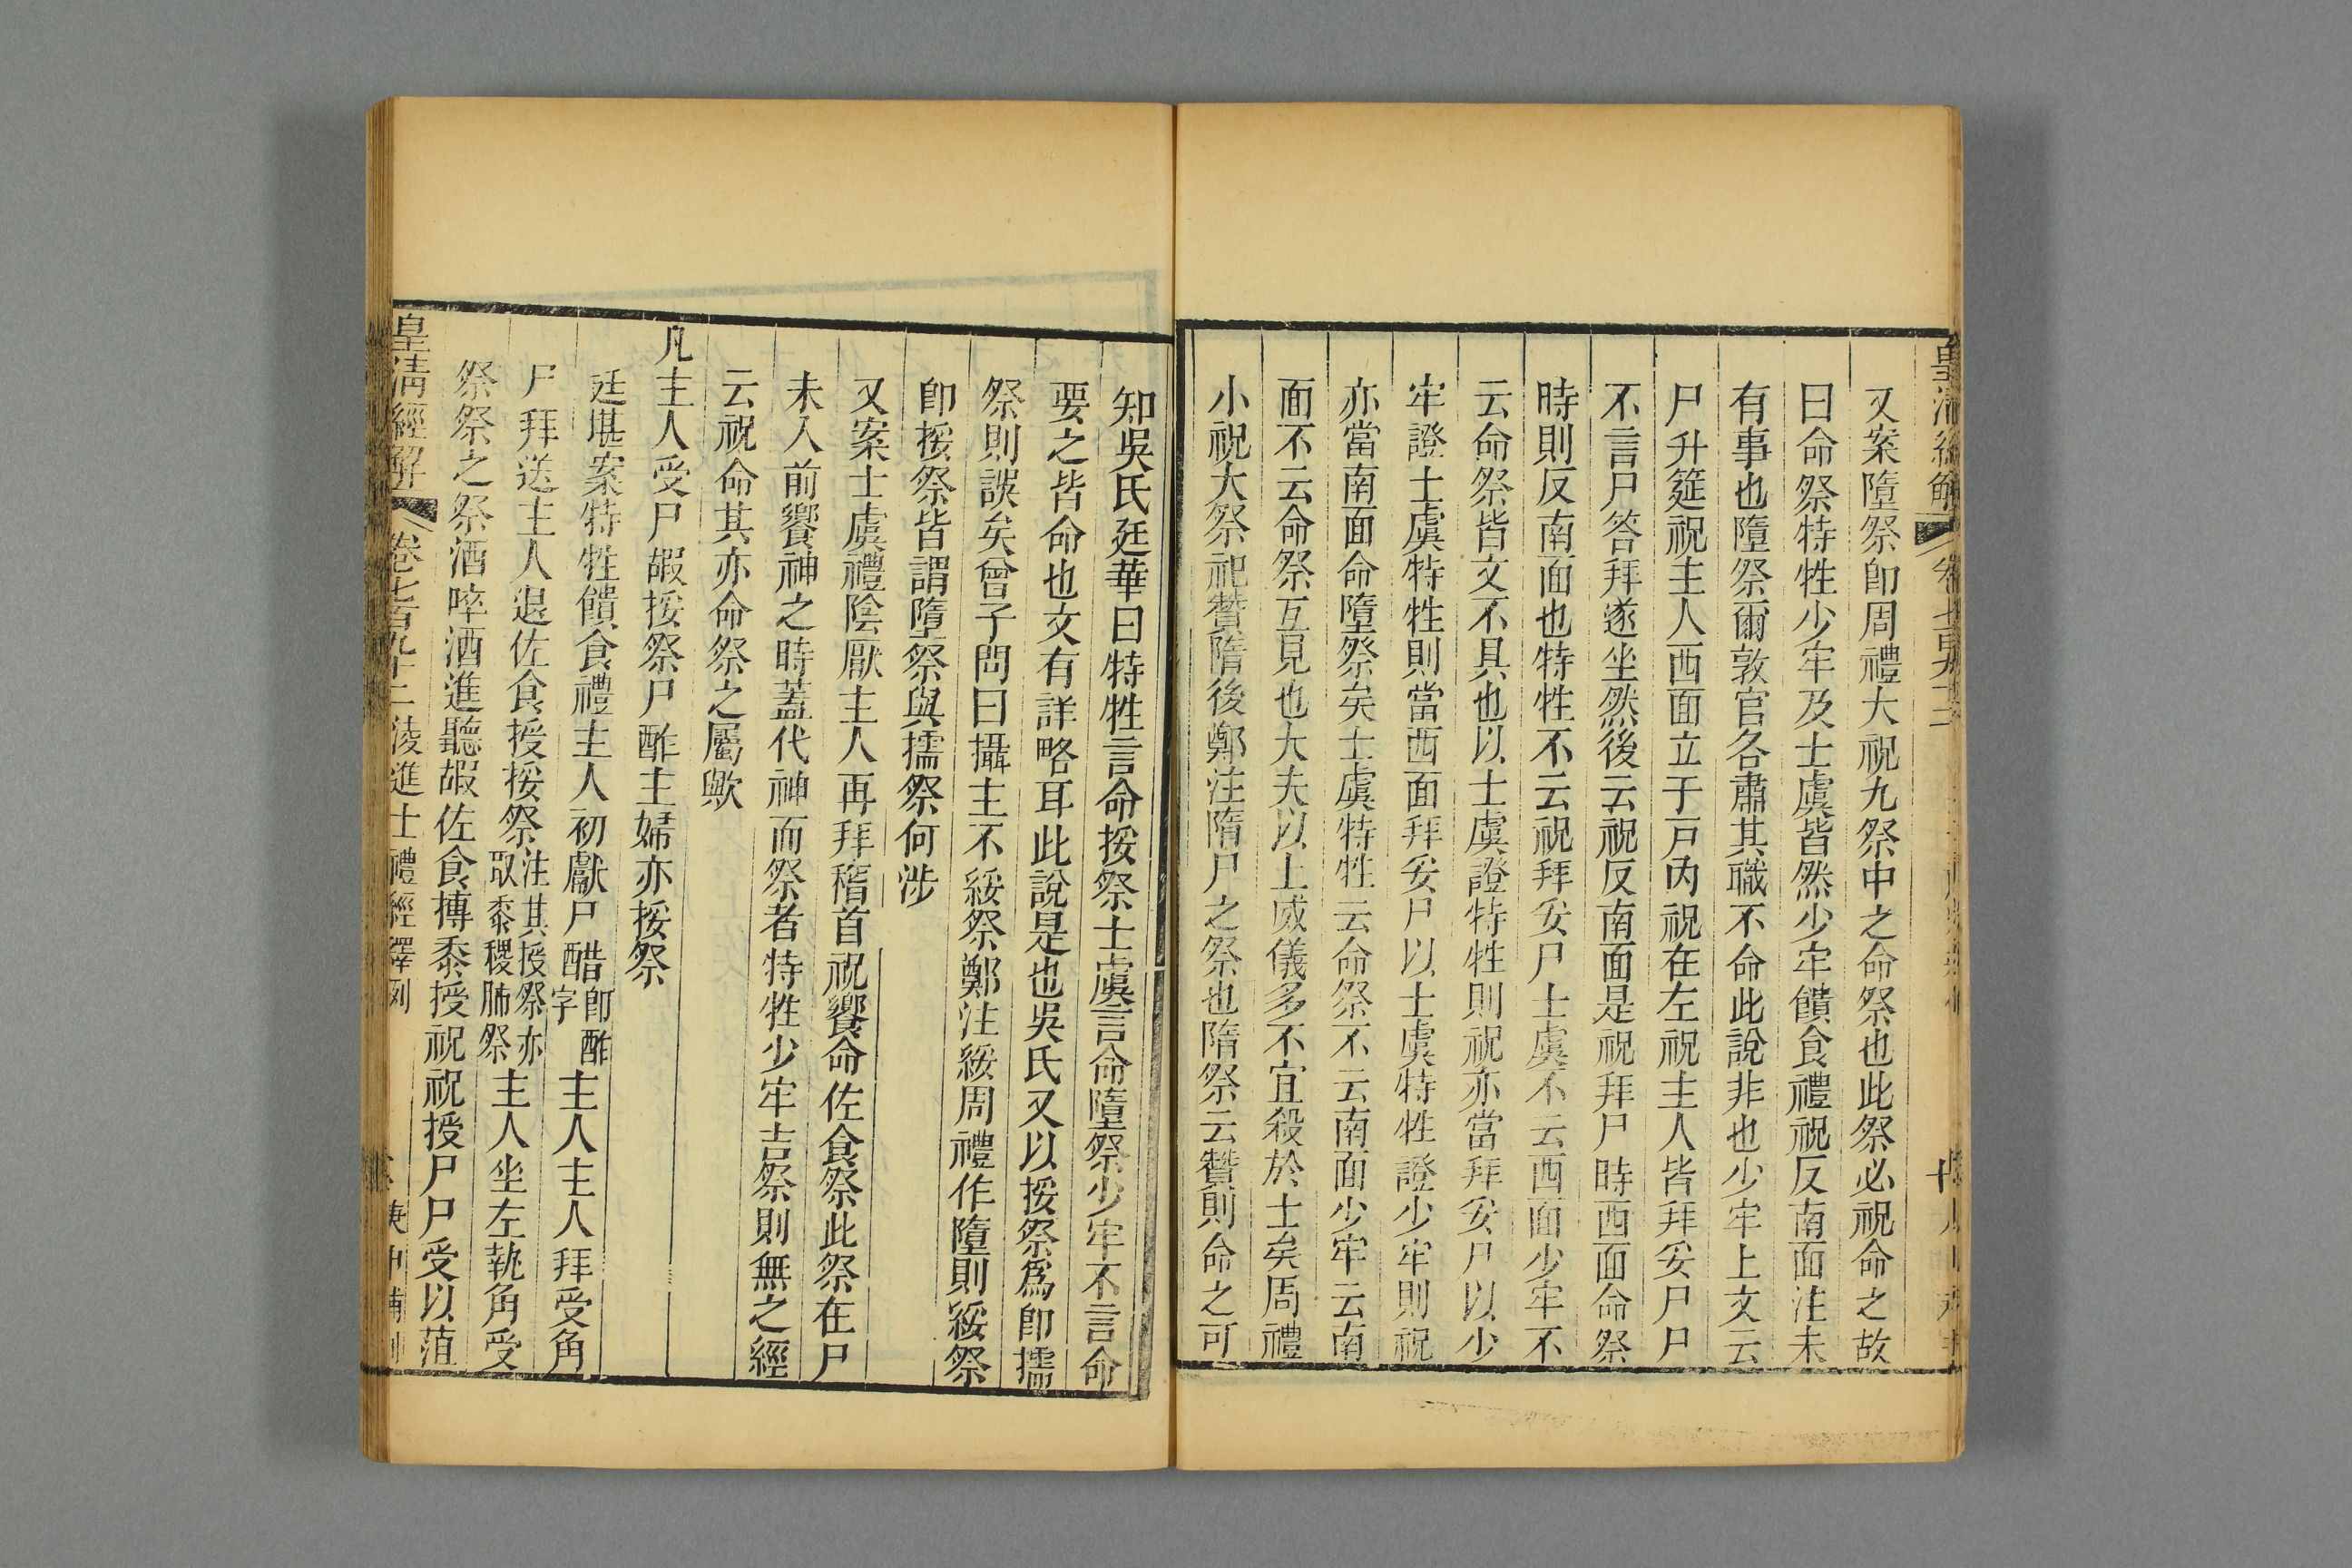 又案隋祭卽周禮大祝九祭中之命祭也此祭必祝命之故
曰命祭特牲少牢及士虞皆然少牢饋食禮祝反南面注未
有事也墮祭爾敦官各肅其職不命此說非也少牢上文云
尸升筵祝主人西面立于戸內祝在左祝主人皆拜妥尸尸
不言尸答拜遂坐然後云祝反南面是祝拜尸時西面命祭
時則反南面也特牲不云祝拜妥尸士虞不云西面少牢不
云命祭皆文不具也以士虞證特牲則祝亦當拜妥尸以少
牢證士虞特牲則當西面拜妥尸以士虞特牲證少牢則祝
亦當南面命墮祭矣士虞特牲云命祭不云南面少牢云南
面不云命祭互見也大夫以上威儀多不宜殺於士矣周禮
小祝大祭祀贊隋後鄭注隋尸之祭也隋祭云贊則命之可
知吳氏廷華曰特牲言命挼祭士虞言命墮祭少牢不言命
要之皆命也文有詳略耳此說是也吳氏又以挼祭爲卽擩
祭則誤矣曾子問曰攝主不綏祭鄭注綏周禮作墮則綏祭
卽挼祭皆謂墮祭與擩祭何涉
又案士虞禮陰厭主人再拜稽首祝饗命佐食祭此祭在尸
未入前饗神之時蓋代神而祭者特牲少牢吉祭則無之經
云祝命其亦命祭之屬歟
凡主人受尸嘏挼祭尸酢主婦亦挼祭
廷堪案特牲饋食禮主人初獻尸醋卽酢字主人主人拜受角
尸拜送主人退佐食授挼祭注其授祭亦取黍稷肺祭主人坐左執角受
祭祭之祭酒啐酒進聽嘏佐食摶黍授祝祝授尸尸受以菹
皇淸經解 卷七百九十二 淩進士禮經釋例